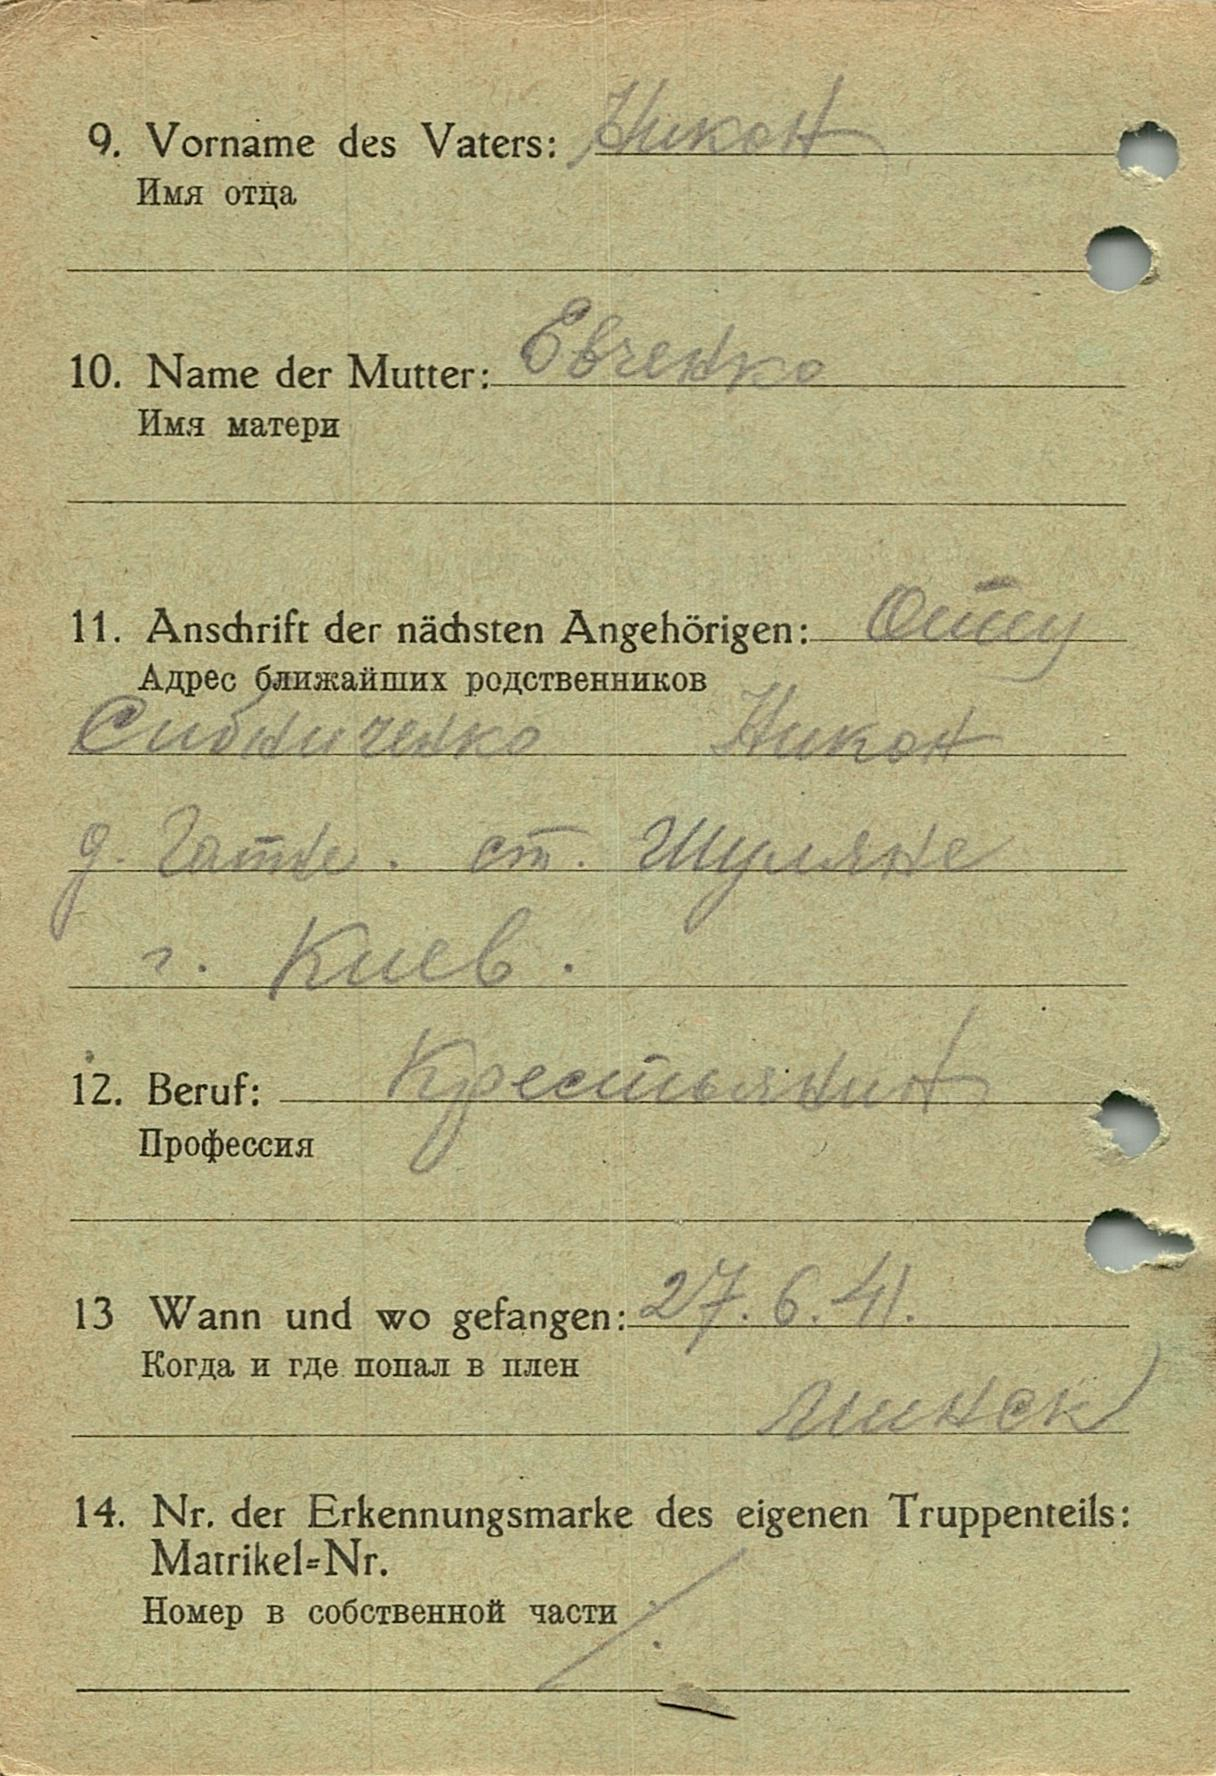 9. Vorname des Vaters: Никон
Имя отца
10. Name der Mutter: Евченко
Имя матери
11. Anschrift der nächsten Angehörigen: Отцу
Адрес ближайших родственников
Сибниченко Никон
д. Гатне. ст. Шуляне
г. Киев.
12. Beruf: Крестьянин
Профессия
13 Wann und wo gefangen: 27.6.41.
Когда и где попал в плен
Минск
14. Nr. der Erkennungsmarke des eigenen Truppenteils:
Matrikel=Nr.
Номер в собственной части